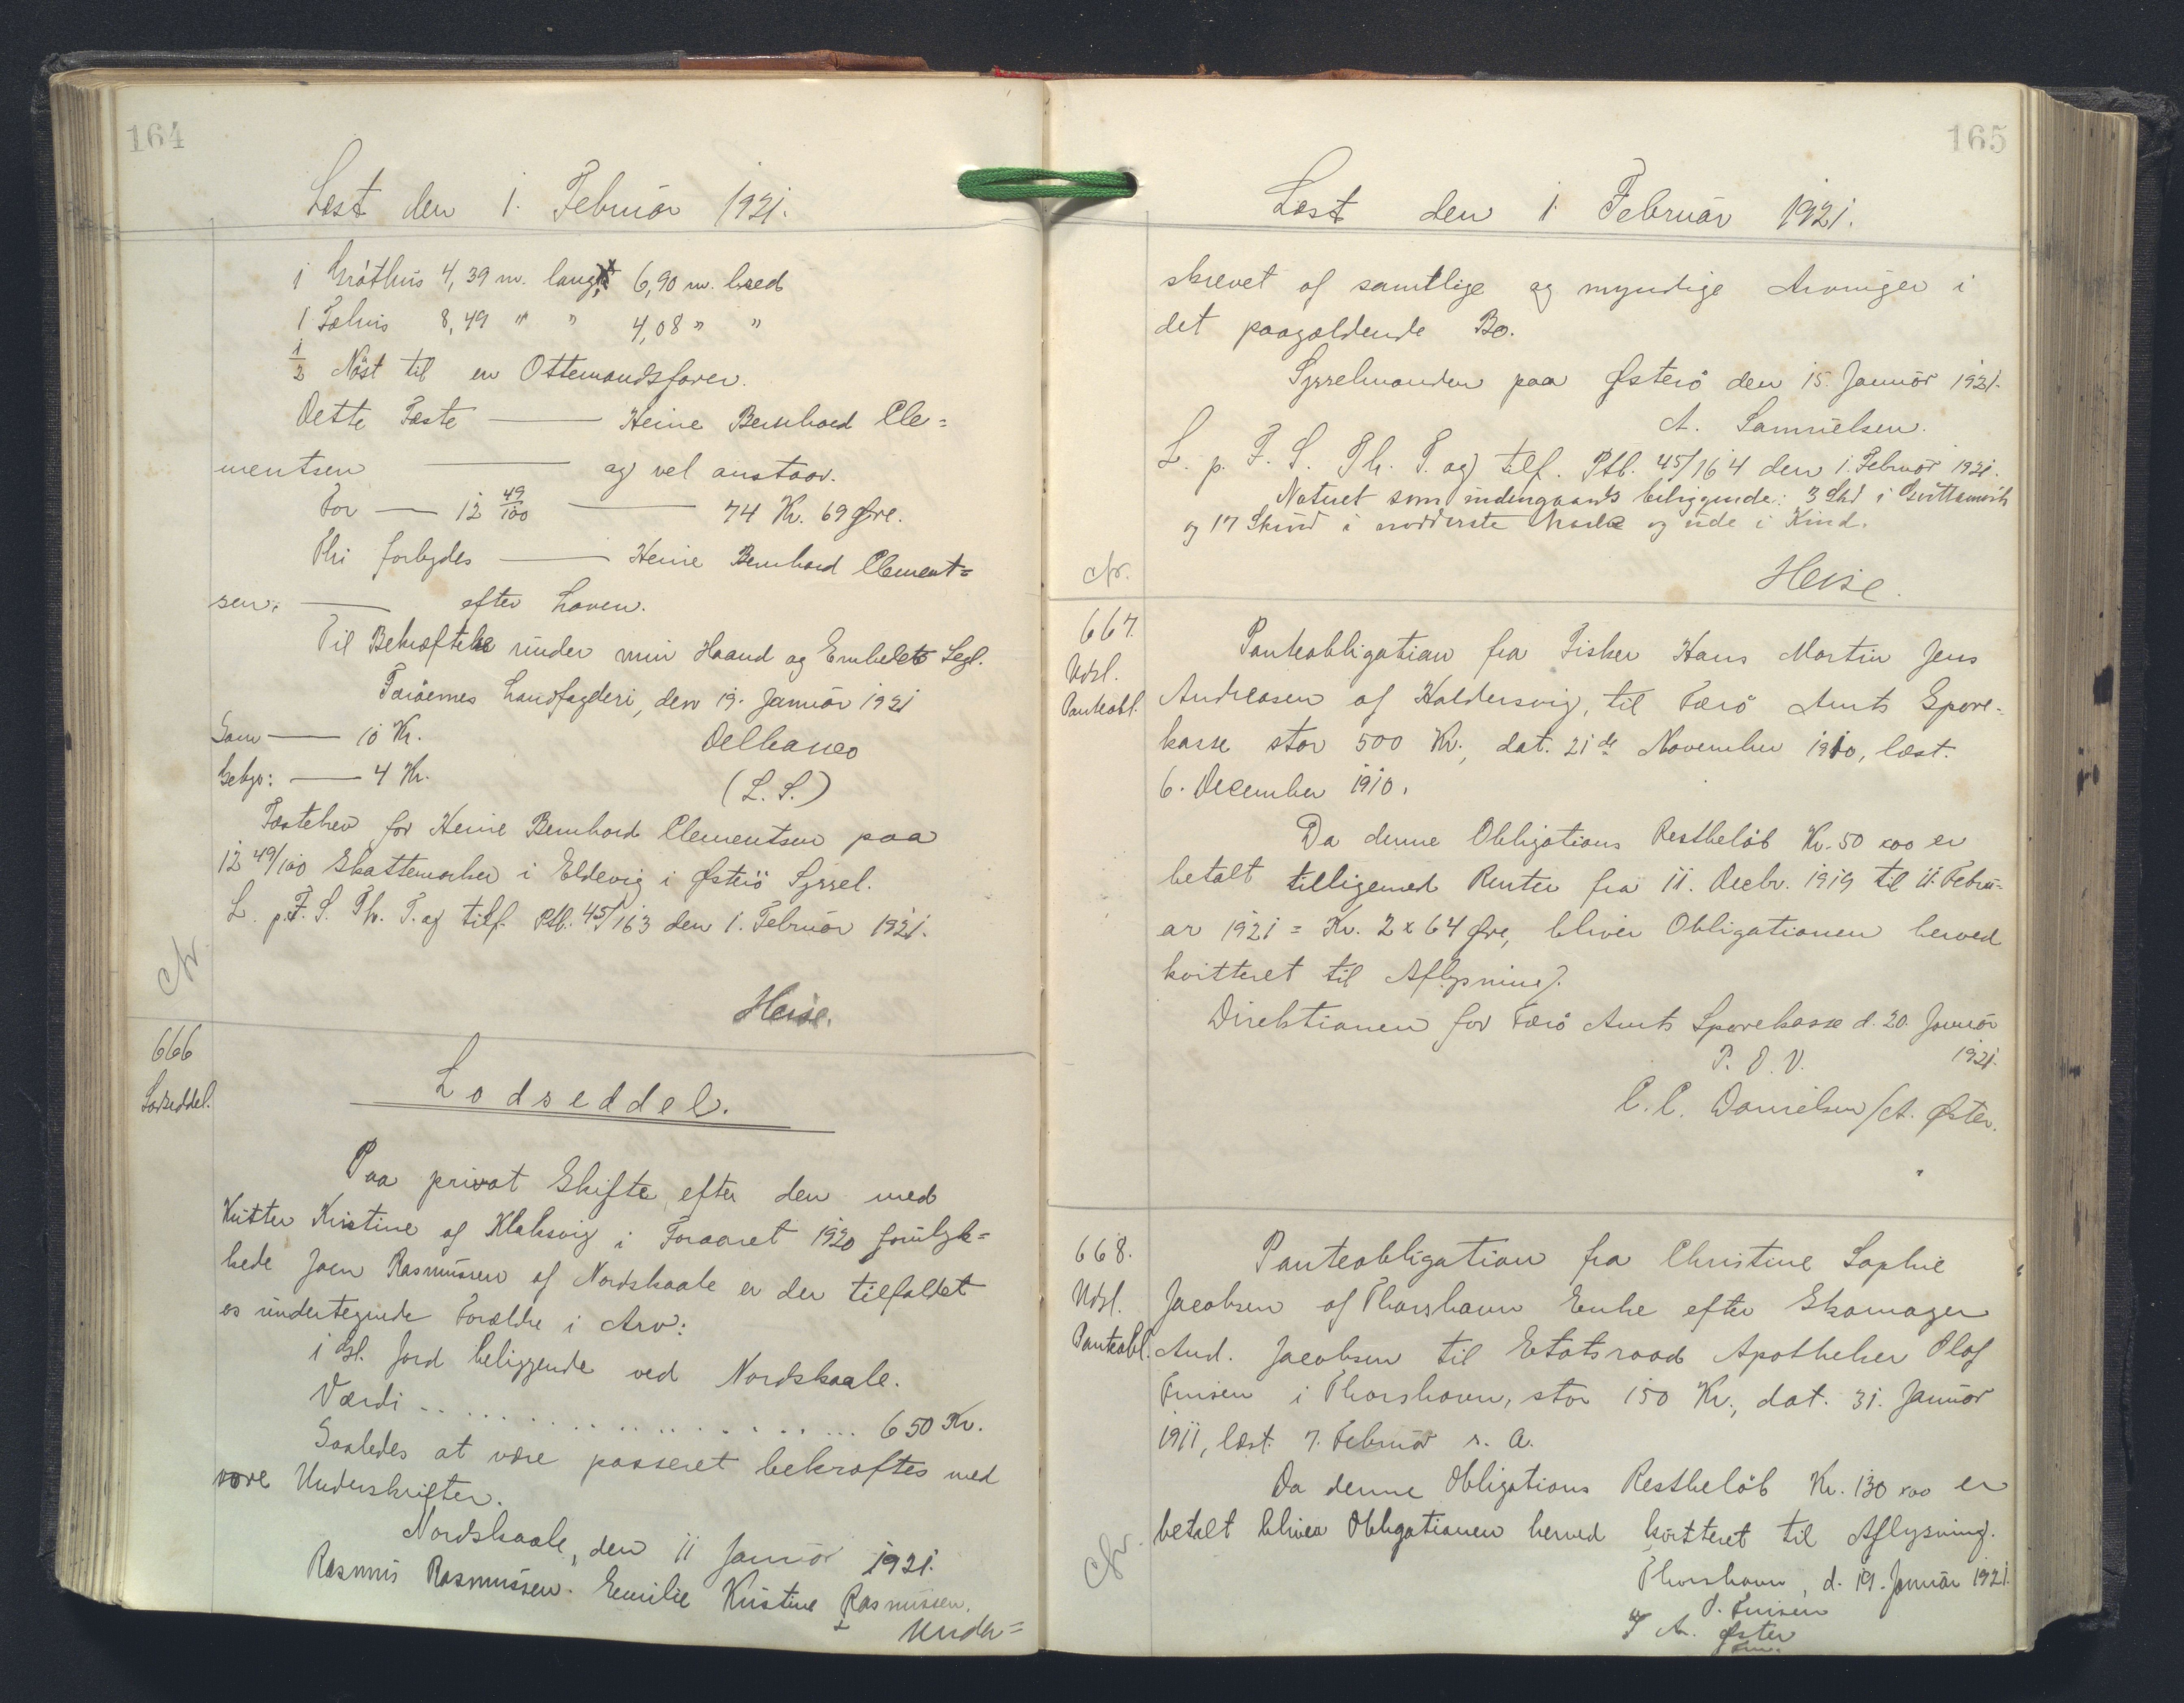 164
Læst den 1. Februar 1921.
1 Gróthus 4,39 m. langt 6,90 m. bred
1 Fæhus 8,49 " " 4,08 " "
1/2 Nöst til en Ottemandsfarer.
Dette Fæste — Heine Bernhard Cle=
mentsen — og vel anstaar.
For — 12 49/100 — 74 Kr. 69 Øre.
Thi forbydes — Heine Bernhard Clement=
sen: — efter Loven.
Til Bekræftelse under min Haand og Embedets Segl.
Færöernes Landfogderi, den 19. Januar 1921
10 Kr. Delbanco
Gebyr: — 4 Kr. (L. S.)
Fæstebrev for Heine Bernhard Clementsen paa
12 49/100 Skattemarker i Eldevig i Østerö Syssel.
L. p. F. S. Th. T. og tilf. Ptb. 45/163 den 1. Februar 1921.
cfr.
Heise.
666
Lodseddel.
Lodseddel.
Paa privat Skifte efter den med
Kutter Kristine af Klaksvig i Foraaret 1920 forulyk=
kede Joen Rasmussen af Nordskaale er der tilfaldet
os undertegnede Forældre i Arv:
1 Gl. Jord beliggende ved Nordskaale.
Værdi . . . . . . . . . . . . . . . . 650 Kr.
Saaledes at være passeret bekræftes med
vore Underskrifter.
Nordskaale, den 11 Januar 1921.
Rasmus Rasmussen. Emilie Kristine Rasmussen.
Under=
165
Læst den 1. Februar 1921.
skrevet af samtlige og myndige Arvinger i
det paagældende Bo.
Sysselmanden paa Østerö den 15. Januar 1921.
A. Samuelsen.
L. p. F. S. Th. T. og tilf. Ptb. 45/164 den 1. Februar 1921.
Noteret som indengaards beliggende: 3 Skd i
og 17 Skind i nordderste Mark og ude i Kind.
cfr.
Heise.
667.
Udsl.
Panteobl.
Panteobligation fra Fisker Hans Martin Jens
Andreasen af Haldersvig, til Færö Amts Spare-
kasse stor 500 Kr., dat. 21de November 1910, læst.
6. December 1910.
Da denne Obligations Restbelöb Kr. 50 x00 er
betalt tilligemed Renter fra 11. Decbr. 1919 til 11. Febru-
ar 1921 = Kr. 2 x 64 Øre, bliver Obligationen herved
kvitteret til Aflysning.
Direktionen for Færö Amts Sparekasse d. 20. Januar
1921.
P. D. V.
C. C. Danielsen / A. Øster.
668.
Udsl.
Panteobl.
Panteobligation fra Christine Sophie
Jacobsen af Thorshavn Enke efter Skomager
And. Jacobsen til Etatsraad Apotheker Olaf
Finsen i Thorshavn, stor 150 Kr., dat. 31. Januar
1911, læst. 7. Februar s. A.
Da denne Obligations Restbelöb Kr. 130 x00 er
betalt bliver Obligationen herved kvitteret til Aflysning.
cfr.
Thorshavn, d. 19. Januar 1921.
O. Finsen
A. Øster